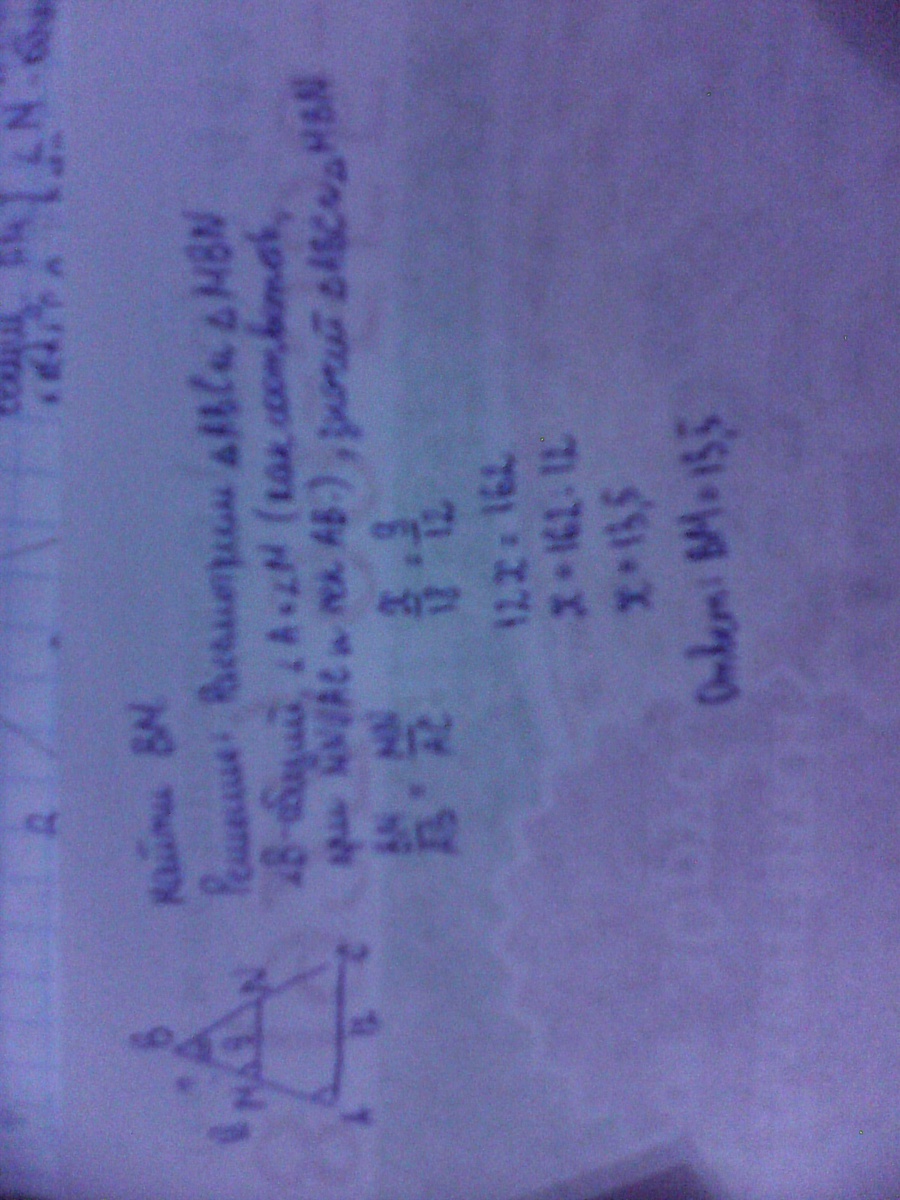 ∠N
Найти BM
Решение: Рассмотрим △ABC и △MBN
∠B-общий, ∠A=∠M (как соответств,
при MN//AC и сек AB), значит △ABC∾△MBN
BM/AB = MN/AC x/18 = 9/12
12x = 162
x = 162:12
x = 13,5
Ответ: BM = 13,5
B
M 9 N
18
A 12 C